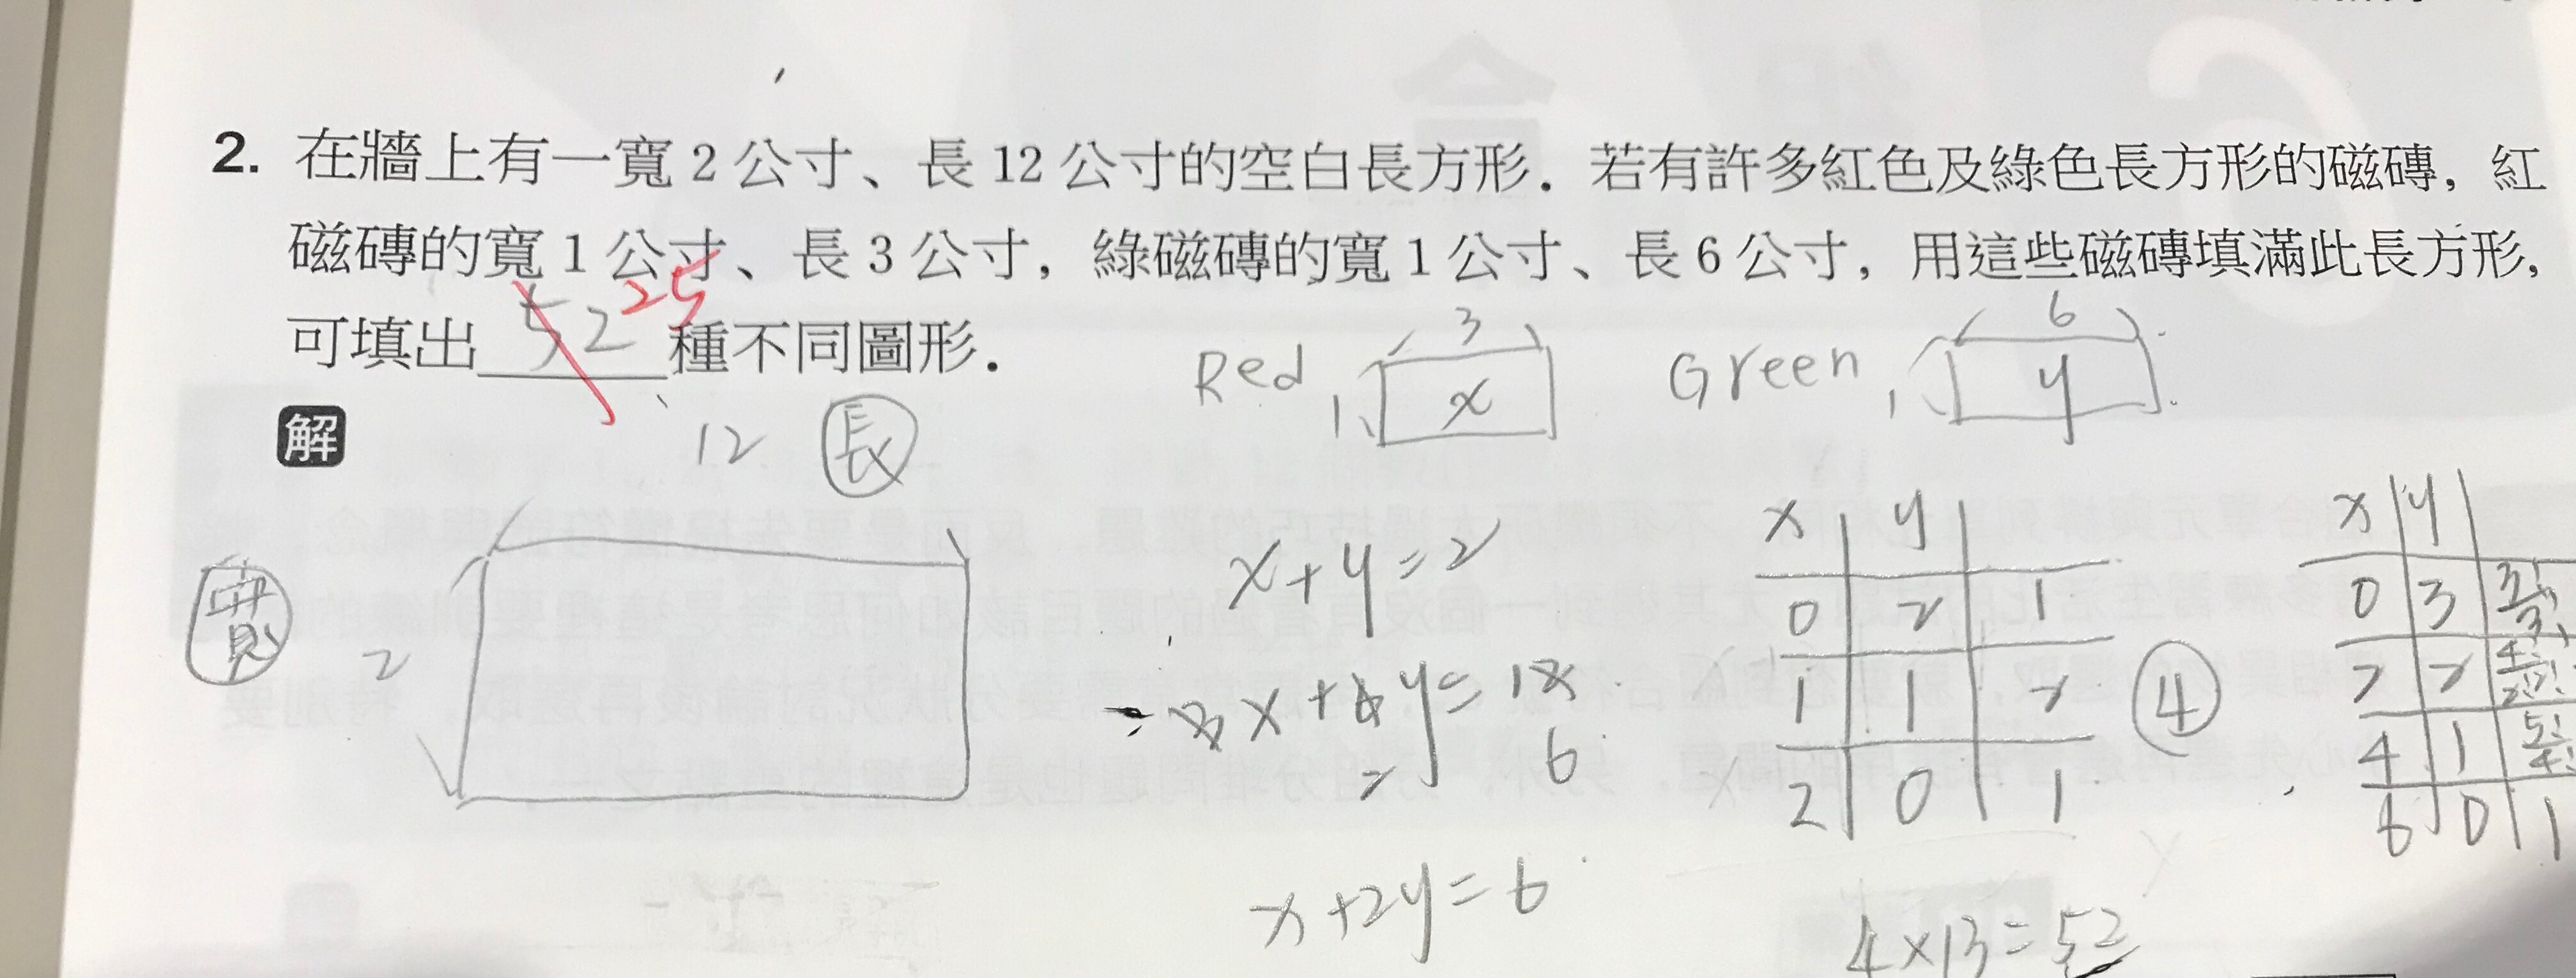 2. 在牆上有一寬 2 公寸、長 12 公寸的空白長方形．若有許多紅色及綠色長方形的磁磚，紅
磁磚的寬 1 公寸、長 3 公寸，綠磁磚的寬 1 公寸、長 6 公寸，用這些磁磚填滿此長方形，
可填出 52 25 種不同圖形．
Red 1 3 x
Green 1 6 y
解
12 長
寬 2
x+y=2
x+2y=6
x y
0 2 1
1 1 2
2 0 1
④
x y
0 3
2 2
4 1
6 0 1
4×13=52